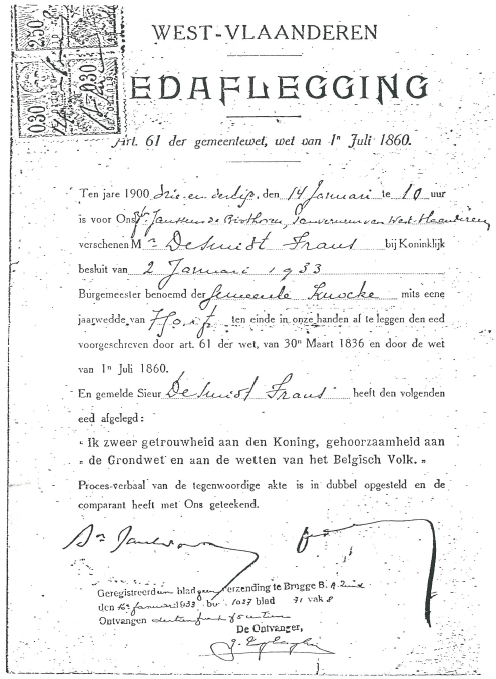 2.50
0.30
0.30
WEST-VLAANDEREN
EDAFLEGGING
Art. 61 der gemeentewet, wet van 1n Juli 1860.
Ten jare 1900 drie en dertig, den 14 Januari te 10 uur
is voor Ons, Janssens de Bisthoven, Gouverneur van West-Vlaanderen
verschenen Mr Desmidt Frans bij Koninklijk
besluit van 2 Januari 1933
Burgemeester benoemd der Gemeente Knocke mits eene
jaarwedde van ten einde in onze handen af te leggen den eed
voorgeschreven door art. 61 der wet, van 30n Maart 1836 en door de wet
van 1n Juli 1860.
En gemelde Sieur Desmidt Frans heeft den volgenden
eed afgelegd:
"Ik zweer getrouwheid aan den Koning, gehoorzaamheid aan
" de Grondwet en aan de wetten van het Belgisch Volk. "
Proces-verbaal van de tegenwoordige akte is in dubbel opgesteld en de
comparant heeft met Ons geteekend.
Geregistreerd een blad geen verzending te Brugge B. A.
den 16n Januari 1933 boek 1037 blad 71 vak 8
Ontvangen
De Ontvanger,